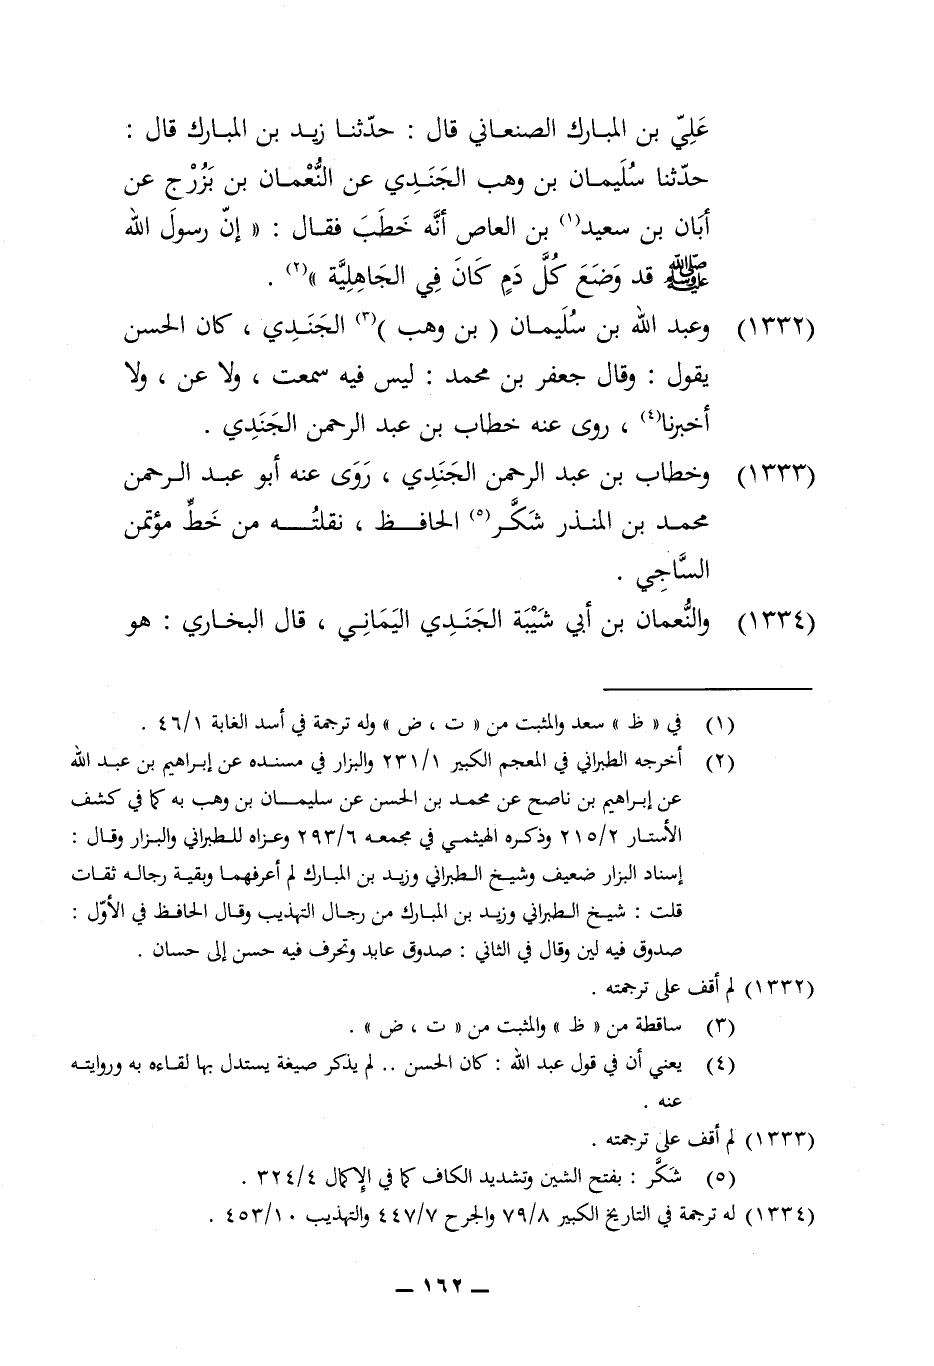 عَلِيّ بن المبارك الصنعاني قال : حدّثنا زيد بن المبارك قال :
حدّثنا سُلَيمان بن وهب الجَنَدِي عن النُّعْمان بن بَزُرْج عن
أبَان بن سعيد(١) بن العاص أنَّه خَطَبَ فقال : « إنّ رسولَ الله
ﷺ قد وَضَعَ كُلَّ دَمٍ كَانَ فِي الجَاهِلِيَّة »(٢) .
(١٣٣٢) وعبد الله بن سُلَيمان ( بن وهب )(٣) الجَنَدِي ، كان الحسن
يقول : وقال جعفر بن محمد : ليس فيه سمعت ، ولا عن ، ولا
أخبرنا(٤) ، روى عنه خطاب بن عبد الرحمن الجَنَدِي .
(١٣٣٣) وخطاب بن عبد الرحمن الجَنَدِي ، رَوَى عنه أبو عبد الرحمن
محمد بن المنذر شَكَّر(٥) الحافظ ، نقلتُه من خَطِّ مؤتمن
السَّاجِي .
(١٣٣٤) والنُّعمان بن أبي شَيْبَة الجَنَدِي اليَمَانِي ، قال البخاري : هو
(١) في « ظ » سعد والمثبت من « ت ، ض » وله ترجمة في أسد الغابة ٤٦/١ .
(٢) أخرجه الطبراني في المعجم الكبير ٢٣١/١ والبزار في مسنده عن إبراهيم بن عبد الله
عن إبراهيم بن ناصح عن محمد بن الحسن عن سليمان بن وهب به كما في كشف
الأستار ٢١٥/٢ وذكره الهيثمي في مجمعه ٢٩٣/٦ وعزاه للطبراني والبزار وقال :
إسناد البزار ضعيف وشيخ الطبراني وزيد بن المبارك لم أعرفهما وبقية رجاله ثقات
قلت : شيخ الطبراني وزيد بن المبارك من رجال التهذيب وقال الحافظ في الأوّل :
صدوق فيه لين وقال في الثاني : صدوق عابد وتحرف فيه حسن إلى حسان .
(١٣٣٢) لم أقف على ترجمته .
(٣) ساقطة من « ظ » والمثبت من « ت ، ض » .
(٤) يعني أن في قول عبد الله : كان الحسن .. لم يذكر صيغة يستدل بها لقاءه به وروايته
عنه .
(١٣٣٣) لم أقف على ترجمته .
(٥) شَكَّر : بفتح الشين وتشديد الكاف كما في الإكمال ٣٢٤/٤ .
(١٣٣٤) له ترجمة في التاريخ الكبير ٧٩/٨ والجرح ٤٤٧/٧ والتهذيب ٤٥٣/١٠ .
— ١٦٢ —